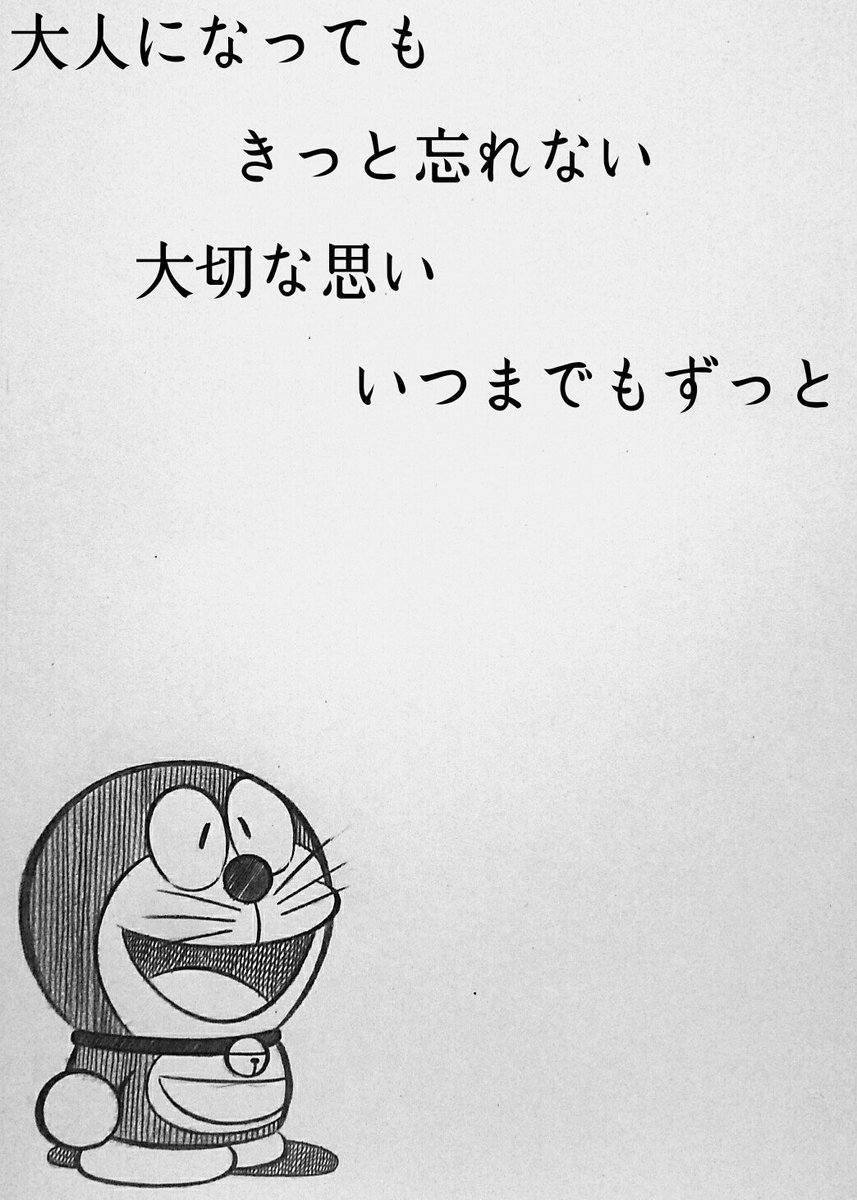 大人になっても
きっと忘れない
大切な思い
いつまでもずっと